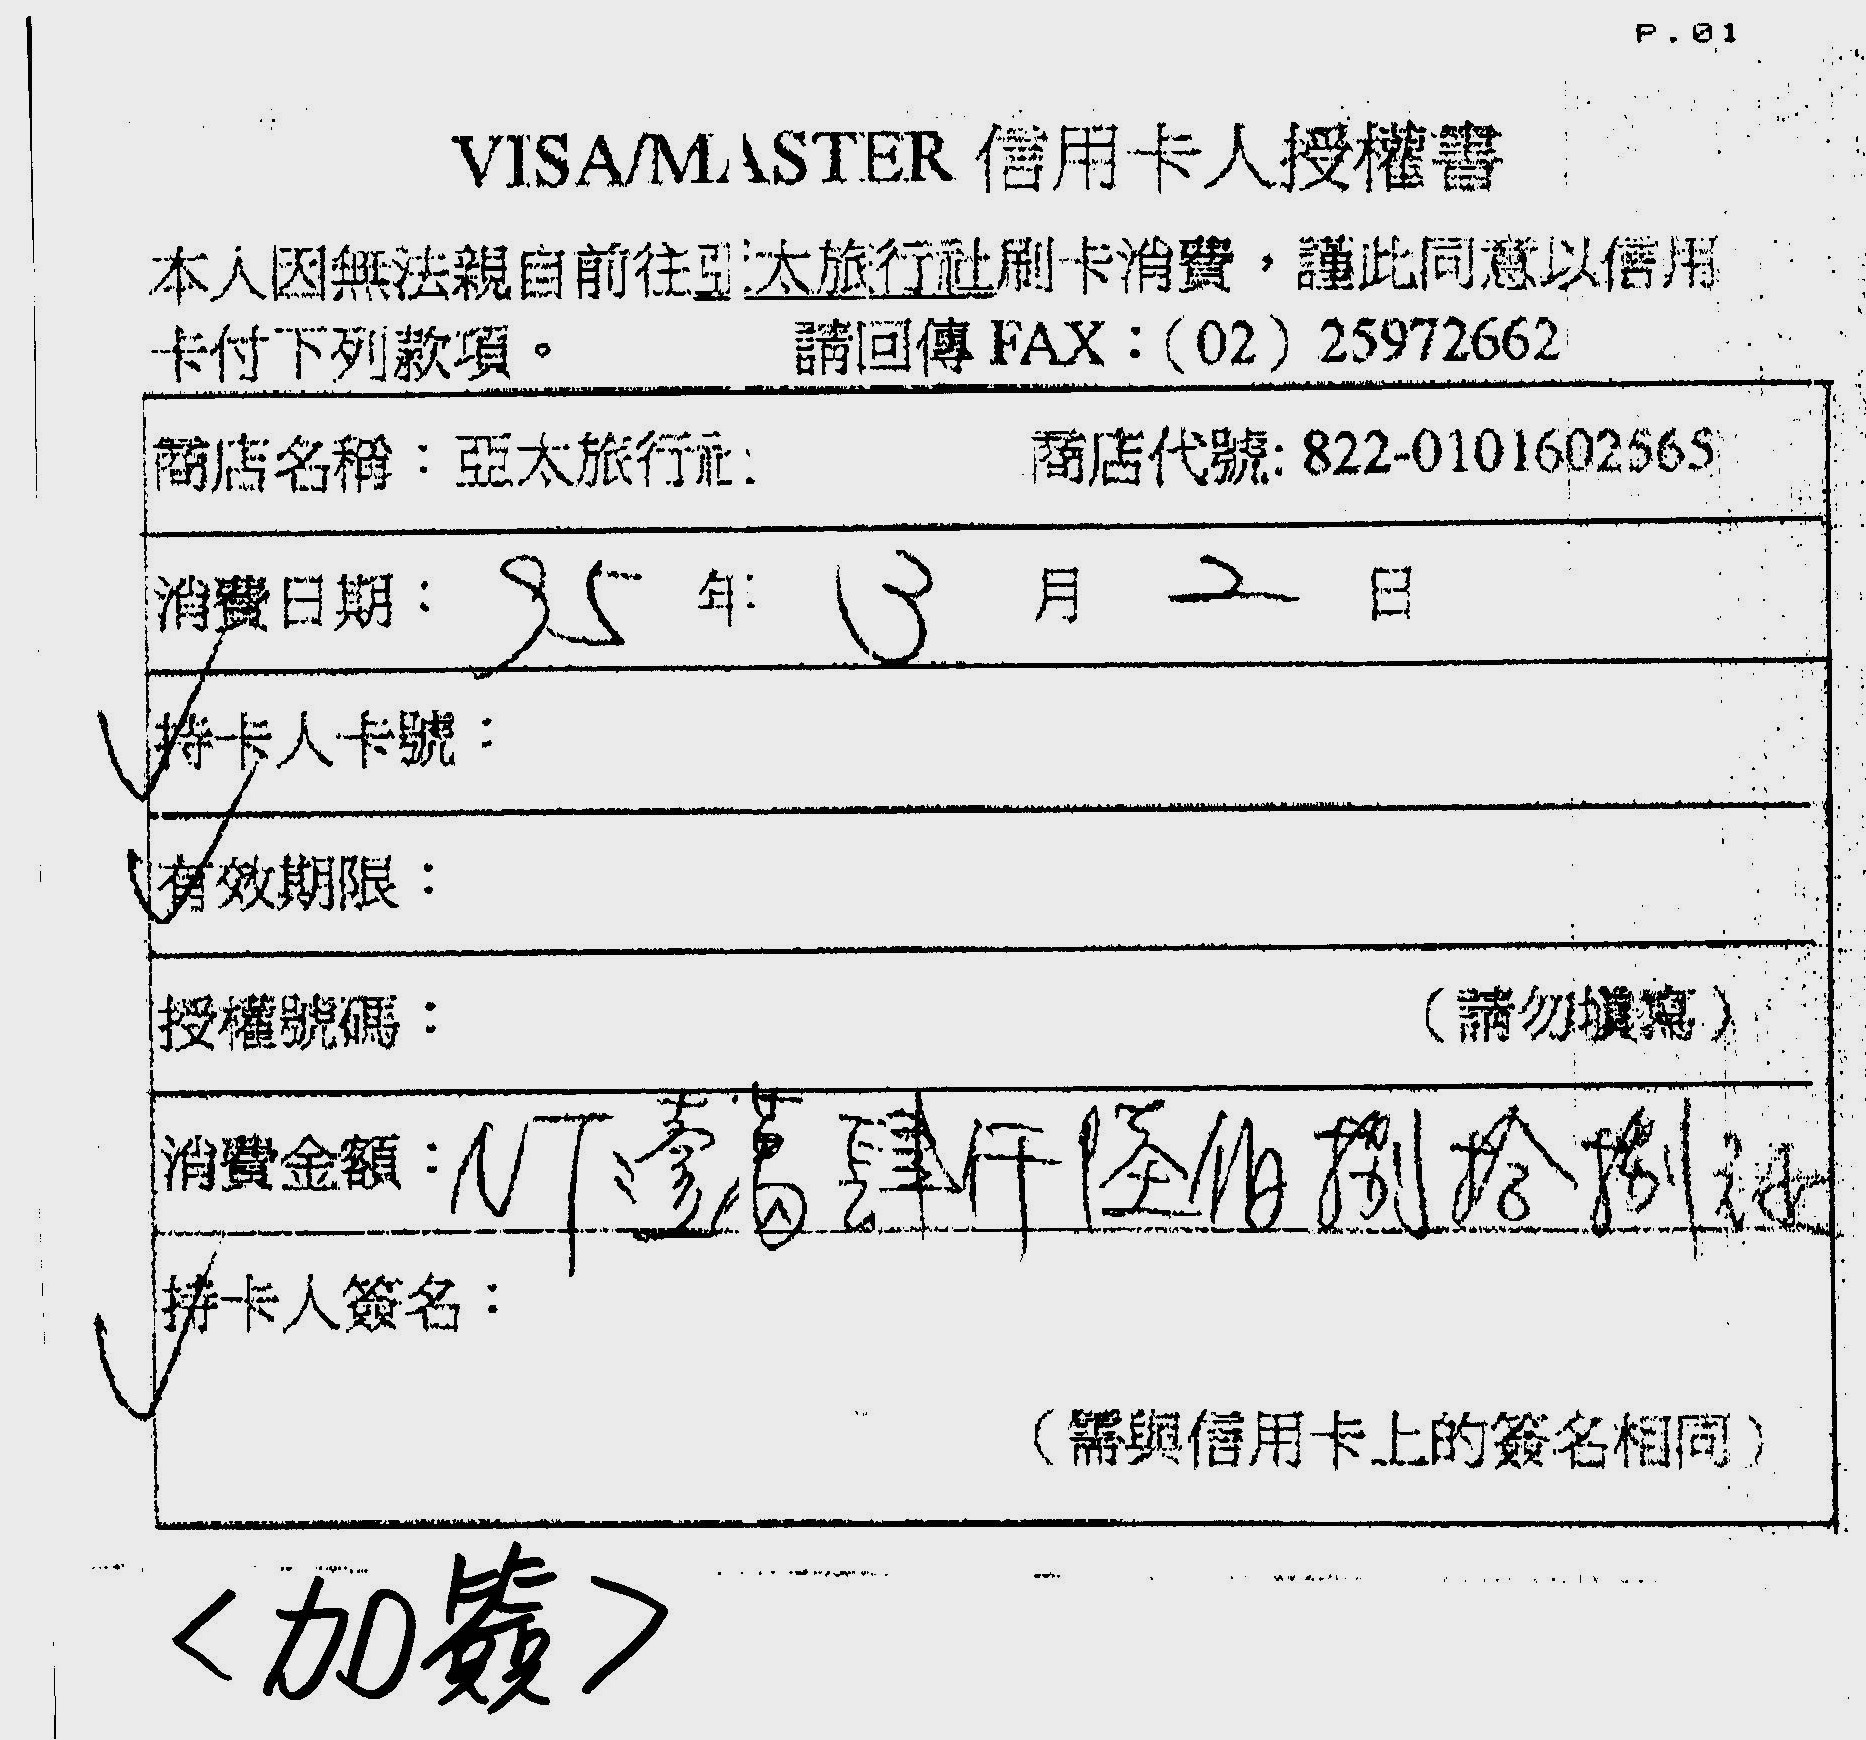 P.01
VISA/MASTER 信用卡人授權書
本人因無法親自前往亞太旅行社刷卡消費，謹此同意以信用
卡付下列款項。 請回傳 FAX：（02）25972662
商店名稱：亞太旅行社 商店代號: 822-0101602565
消費日期： 95 年 月 2 日
持卡人卡號：
有效期限：
授權號碼： （請勿填寫）
消費金額：NT 壹萬肆仟陸佰捌拾捌
持卡人簽名：
（需與信用卡上的簽名相同）
<加簽>